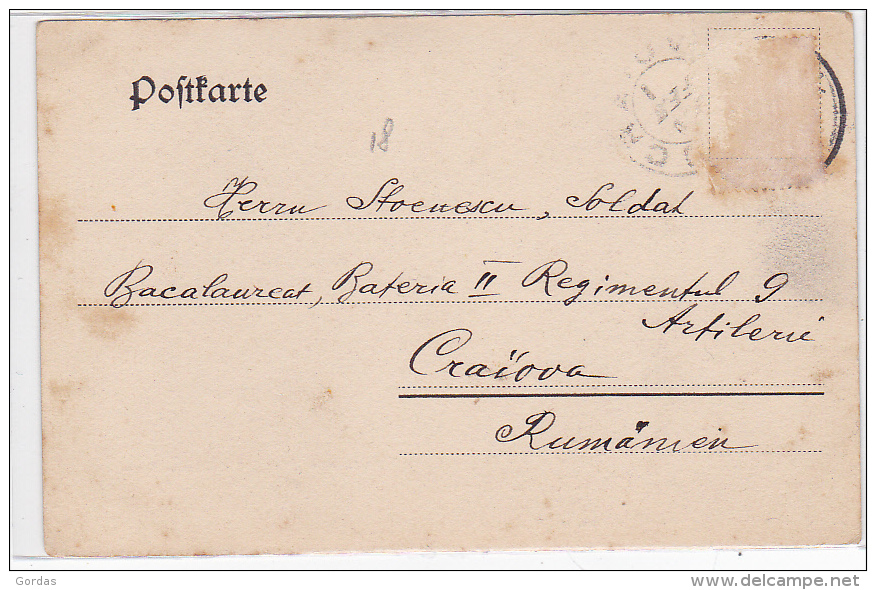 Postkarte
18
Herrn Stoenescu, Soldat
Bacalaureat, Bateria II Regimentul 9
Artilerie
Craiova
Rumänien
Gordas
www.delcampe.net